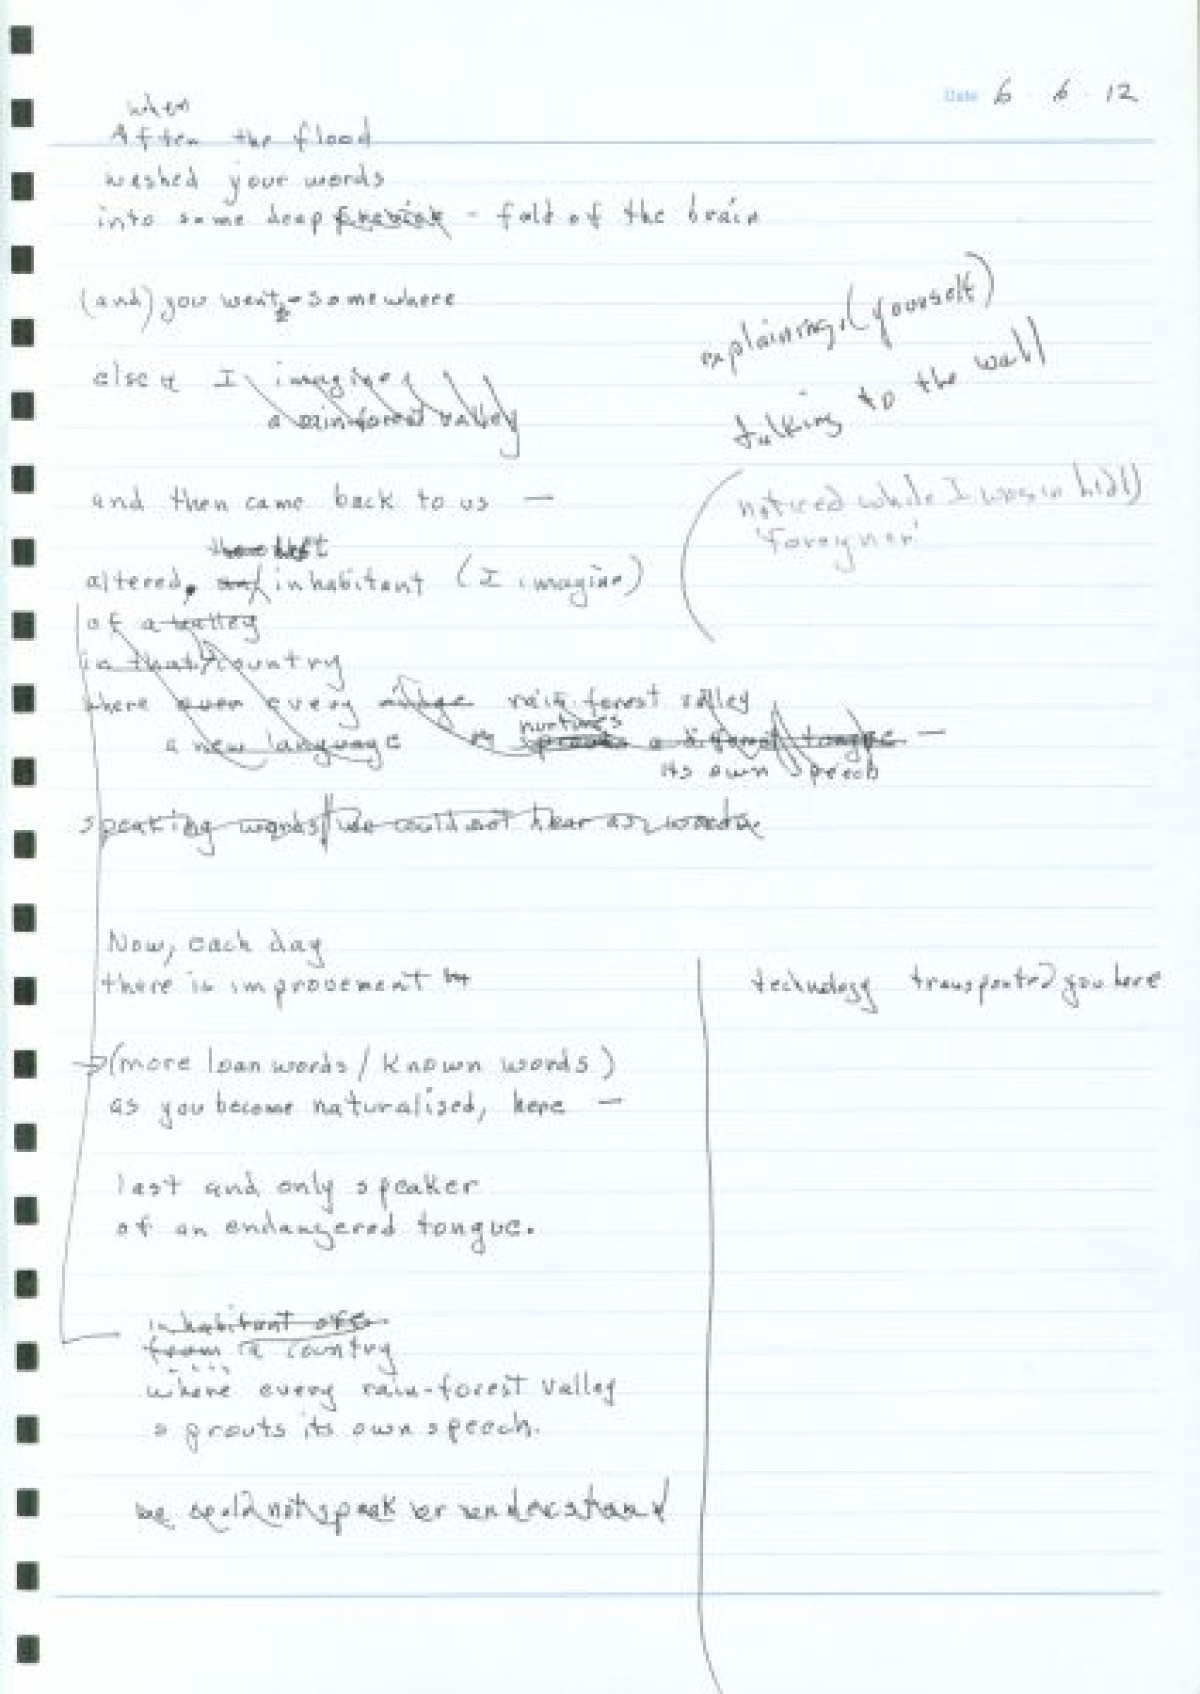 Date 6 . 6 . 12
when
After the flood
washed your words
into some deep - fold of the brain
(and) you went - somewhere
else I imagine
a rain-forest valley
explaining (yourself)
talking to the wall
and then came back to us —
noticed while I was in
'Foreigner'
altered, inhabitant (I imagine)
of a valley
in that country
where over every rain forest valley
nurtures
a new language a different tongue —
its own speech
speaking words we could not hear as words
Now, each day
there is improvement
technology transported you here
→ (more loan words / known words)
as you become naturalised, here —
last and only speaker
of an endangered tongue.
inhabitant of a
from a country
where every rain-forest valley
sprouts its own speech.
we could not speak or understand